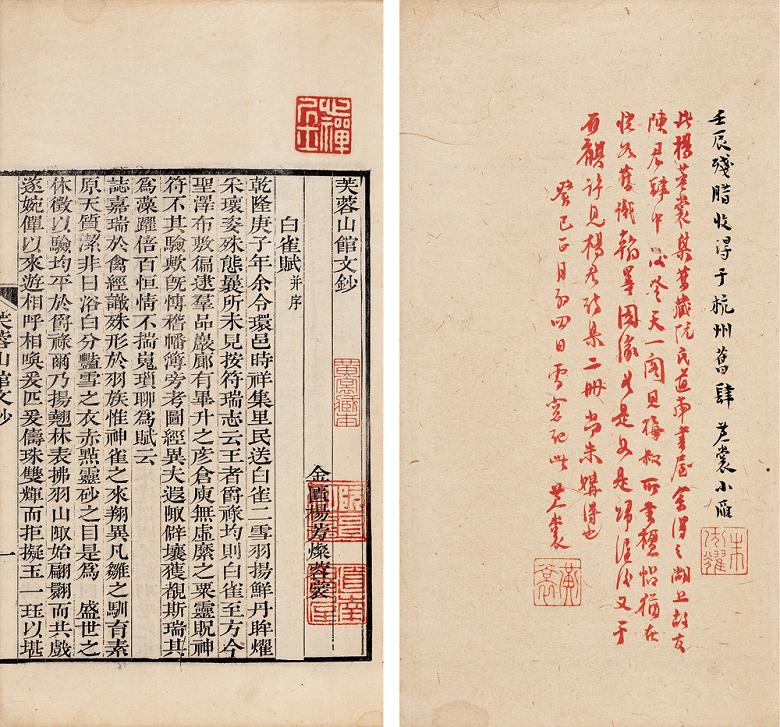 壬辰殘臘收得于杭州舊肆 黃裳小雁
此楊蓉裳集舊藏阮氏道南書屋余得之湖上故友
陳君肆中後登天一閣見梅叔所書楹帖猶在
恍如舊識翰墨因緣如是如是歸滬後又于
石麒許見楊君詩集二冊尚未購得也
癸巳正月初四日雪窗記此 黃裳
黃裳
芙蓉山館文鈔
金匱楊芳燦蓉裳
白雀賦并序
乾隆庚子年余令環邑時祥集里民送白雀二雪羽揚鮮丹眸燿
采瓌姿殊態曩所未見按符瑞志云王者爵祿均則白雀至方今
聖澤布敷徧逮羣品巖廊有畢升之彥倉庾無虛縻之粟靈貺神
符不其驗歟旣愽稽幡簿旁考圖經異夫遐陬僻壤獲覩斯瑞其
為藻躍倍百恒情不揣嵬瑣聊為賦云
誌嘉瑞於禽經識殊形於羽族惟神雀之來翔異凡雛之馴育素
原天質潔非日浴白分豔雪之衣赤點靈砂之目是為 盛世之
休徵以驗均平於爵祿爾乃揚翹林表拂羽山陬始翩翾而共戲
遂婉僤以來遊相呼相喚爰匹爰儔珠雙輝而拒擬玉一珏以堪
芙蓉山館文鈔 一